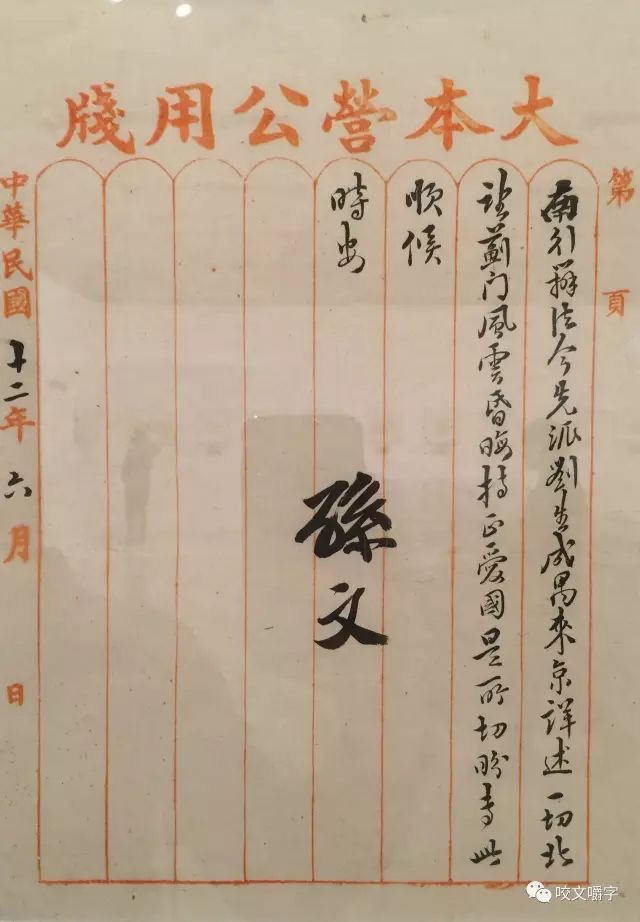 大本營公用牋
第 頁
南行辦法今先派劉生成禺來京詳述一切北
望薊门風雲昏晦持正愛國是所切盼专此
順候
時安
孫文
中華民國十二年六月 日
咬文嚼字